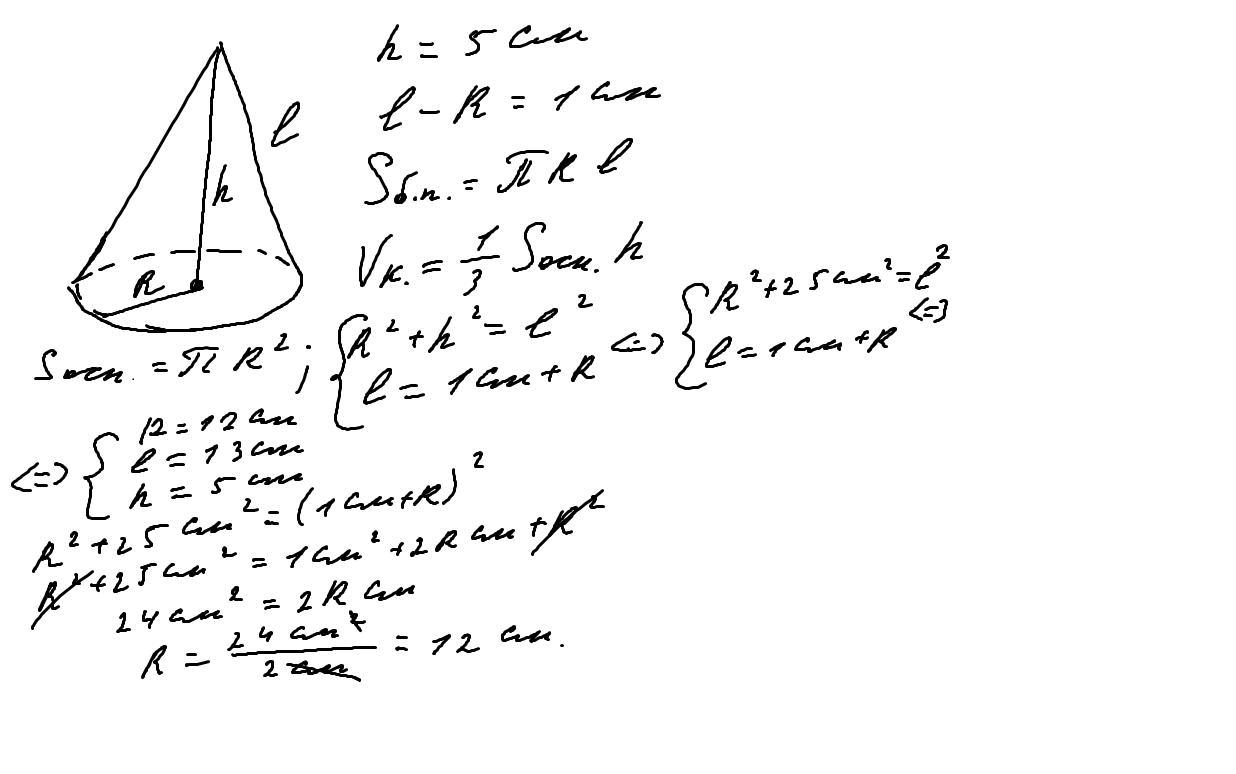 h = 5 см
l
l - R = 1 см
Sб.п. = πRl
h
Vк. = 1/3 Sосн. h
R
Sосн. = πR²; { R² + h² = l² <=> { R² + 25 см² = l²
l = 1 см + R l = 1 см + R <=>
<=> { R = 12 см
l = 13 см
h = 5 см
R² + 25 см² = (1 см + R)²
R² + 25 см² = 1 см² + 2R см + R²
24 см² = 2R см
R = 24 см² / 2 см = 12 см.